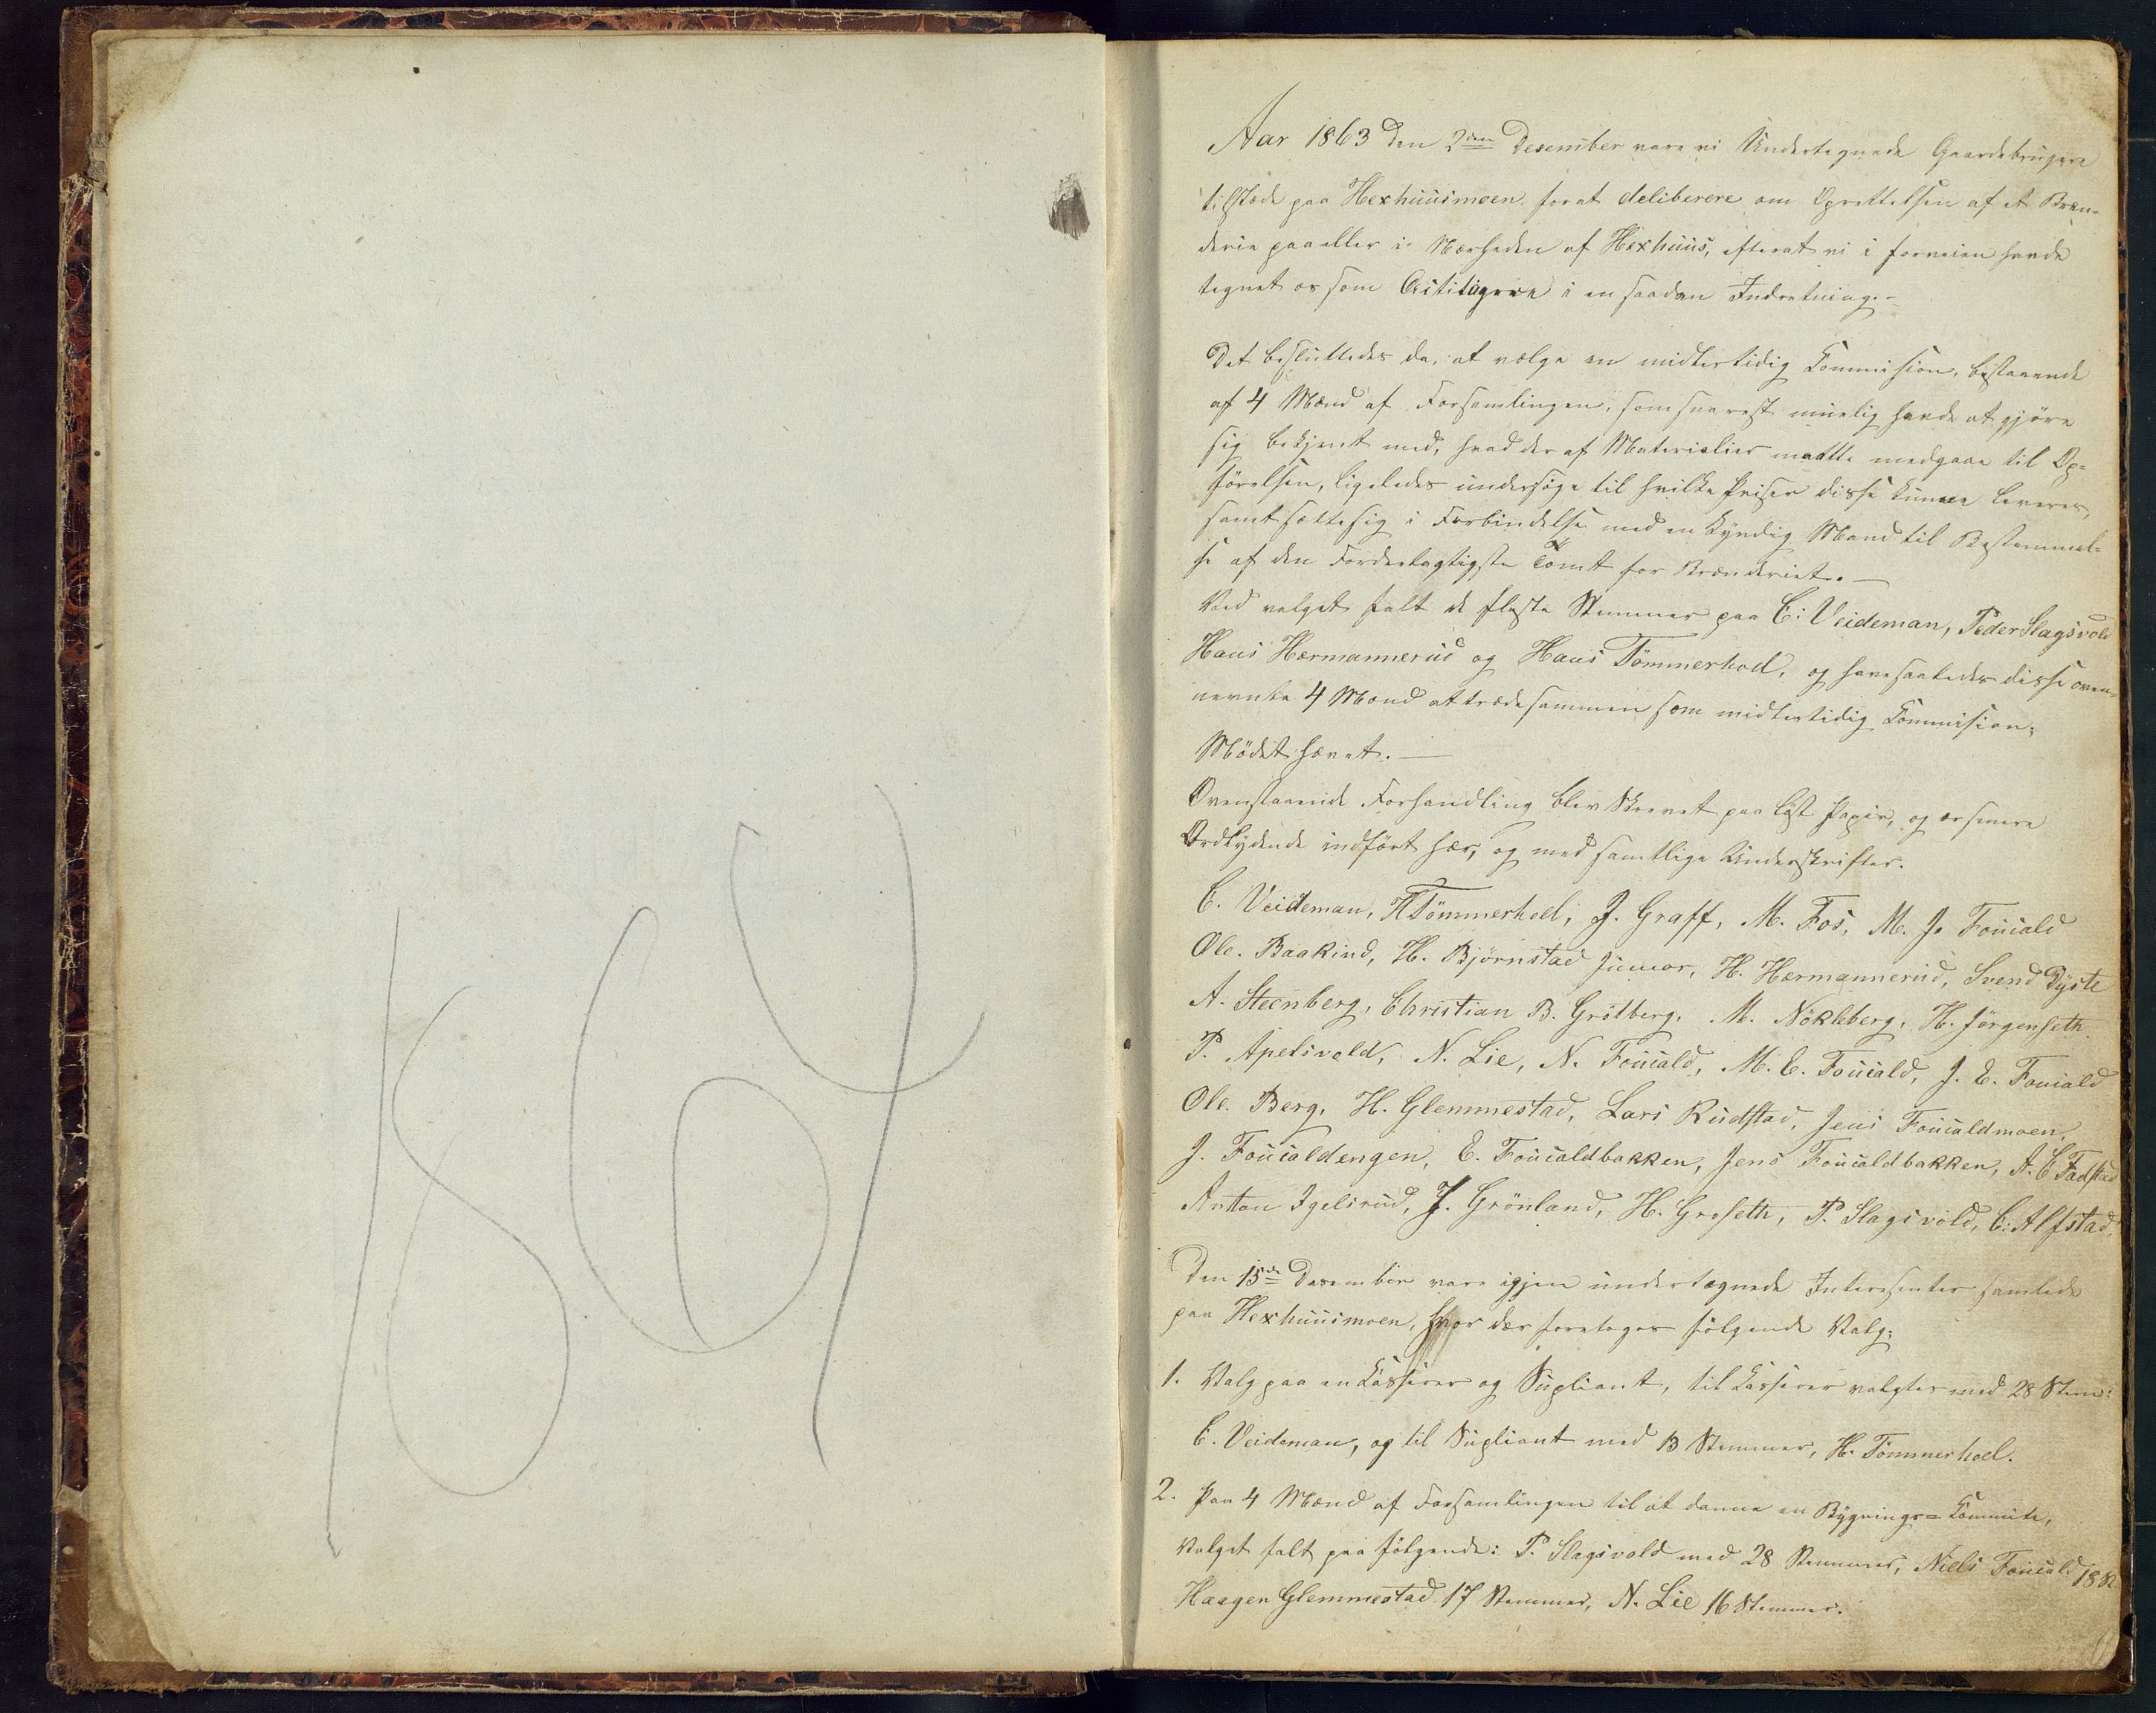 1864
Aar 1863 den 2den Desember vare vi Undertegnede Gaardebrugere
tilstæde paa Hexhuusmoen forat deliberere om Oprettelsen af et Bræn-
derie paa eller i Nærheden af Hexhuus, efterat vi i forveien havde
tegnet os som i en saadan Indretning.-
Det besluttedes da, at vælge en midlertidig Commission, bestaaende
af 4 Mænd af Forsamlingen, som snarest muelig havde at gjøre
sig bekjent med, hvad der af Materialier maatte medgaae til Op-
førelsen, ligeledes undersøge til hvilke Priser disse kunne leveres,
samt sætte sig i Forbindelse med en kyndig Mand til Bestemmel-
se af den Fordelagtigste Tomt for Brænderiet.-
Ved valget falt de fleste Stemmer paa C: Veideman, Peder Slagsvold
Hans Hærmannerud og Hans Tömmerhoel, og have saaledes disse oven-
nevnte 4 Mænd at træde sammen som midlertidig Commision,
Mödet hævet.-
Ovenstaaende Forhandling blev skrevet paa løst Papir, og er senere
Ordlydende indført her, og med samtlige Underskrifter.
C. Veideman, H Tömmerhoel, J. Graff, M. Fos, M. J. Fouald
Ole Baakind, H. Björnstad junior, H. Hærmannerud, Svend Dyste
A. Steenberg, Christian B. Grötberg, M. Nökleberg, H. Jörgenseth
P. Apelsvold, N. Lie, N. Fouald, M. E. Fouald, J. E. Fouald
Ole Berg, H. Glemmestad, Lars Rudstad, Jens Foualdmoen,
J. Foualdengen, E. Foualdbakken, Jens Foualdbakken, A. C Fadstad
Anton Igelsrud, J. Grönland, H. Groseth, P. Slagsvold, C. Alfstad,
Den 15de Desember vare igjen undertegnede Interesenter samlede
paa Hexhuusmoen, hvor der foretoges følgende Valg;
1. Valg paa en Casserer og Supliant, til Casserer valgtes med 28 Stem:
C. Veideman, og til Supliant med 13 Stemmer, H. Tömmerhoel.
2. Paa 4 Mænd af Forsamlingen til at danne en Bygnings-Commite,
Valget falt paa følgende: P. Slagsvold med 28 Stemmer, Niels Fouald 18 St
Haagen Glemmestad 17 Stemmer, N. Lie 16 Stemmer.